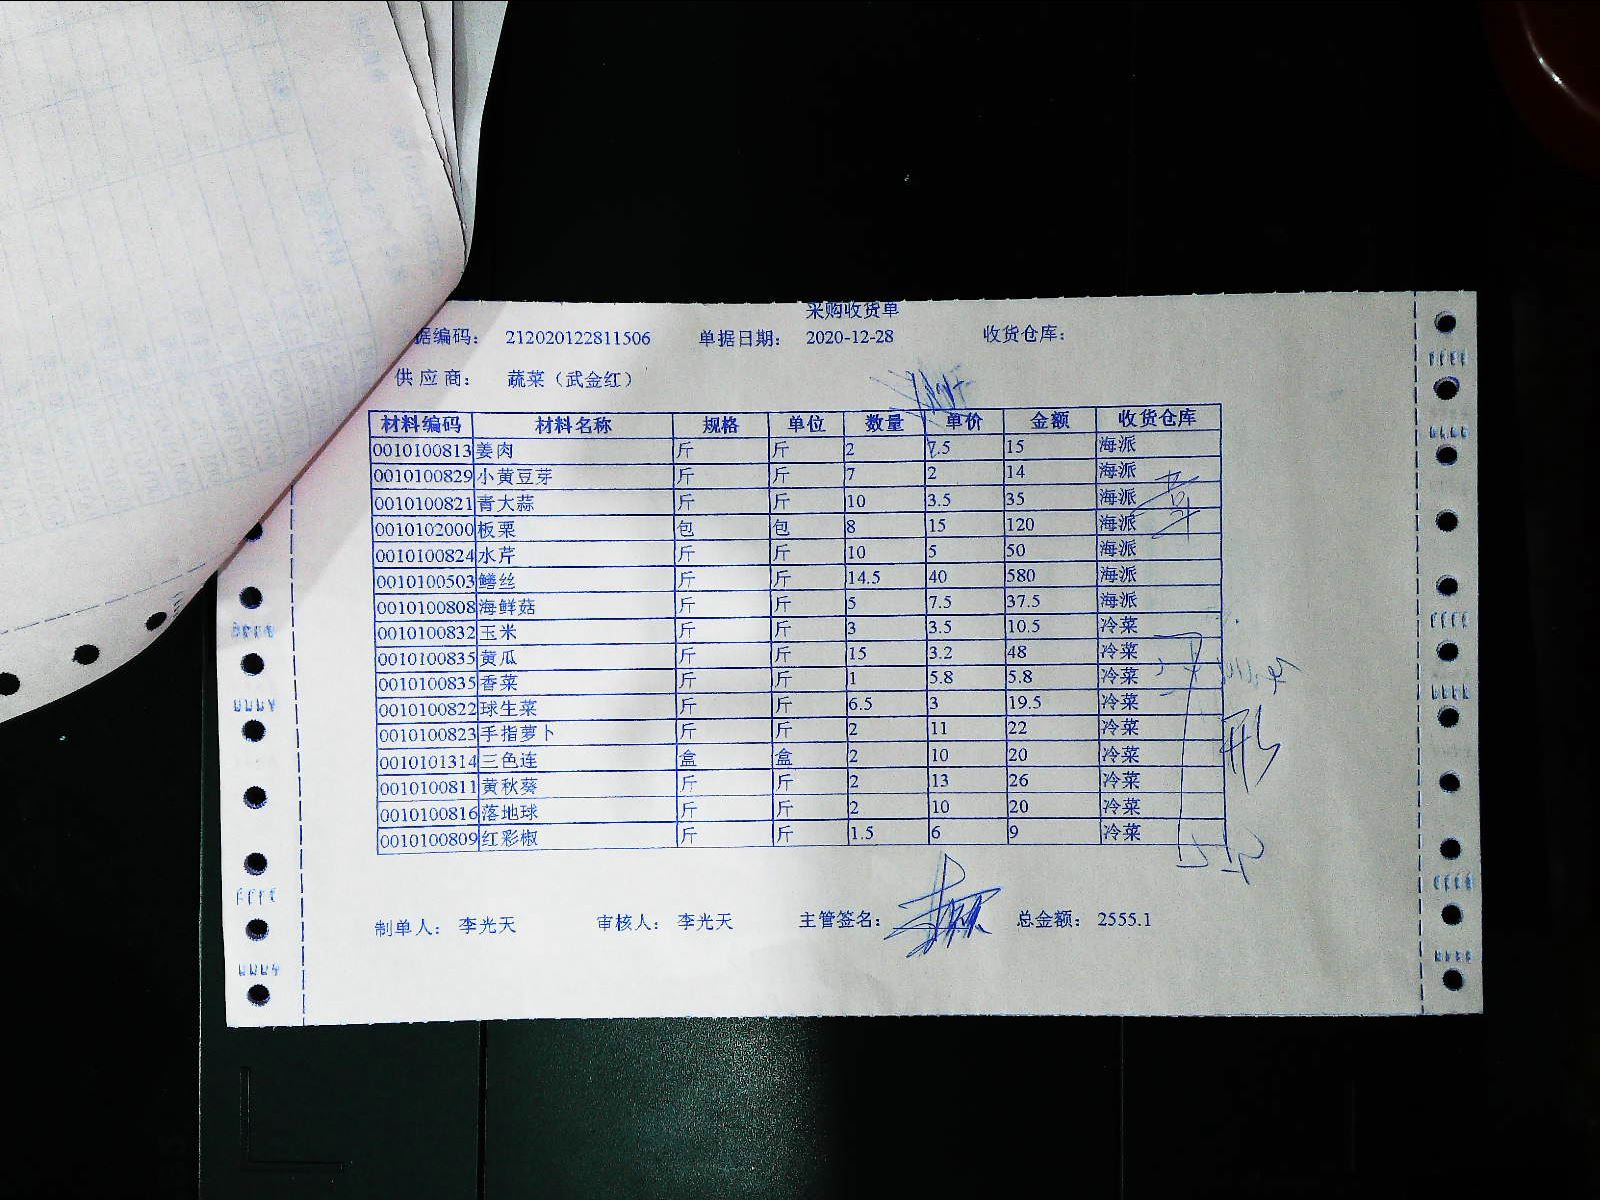 采购收货单
据编码： 212020122811506 单据日期： 2020-12-28 收货仓库：
供 应 商： 蔬菜（武金红）
材料编码 材料名称 规格 单位 数量 单价 金额 收货仓库
0010100813 姜肉 斤 斤 2 7.5 15 海派
0010100829 小黄豆芽 斤 斤 7 2 14 海派
0010100821 青大蒜 斤 斤 10 3.5 35 海派
0010102000 板栗 包 包 8 15 120 海派
0010100824 水芹 斤 斤 10 5 50 海派
0010100503 鳝丝 斤 斤 14.5 40 580 海派
0010100808 海鲜菇 斤 斤 5 7.5 37.5 海派
0010100832 玉米 斤 斤 3 3.5 10.5 冷菜
0010100835 黄瓜 斤 斤 15 3.2 48 冷菜
0010100835 香菜 斤 斤 1 5.8 5.8 冷菜
0010100822 球生菜 斤 斤 6.5 3 19.5 冷菜
0010100823 手指萝卜 斤 斤 2 11 22 冷菜
0010101314 三色连 盒 盒 2 10 20 冷菜
0010100811 黄秋葵 斤 斤 2 13 26 冷菜
0010100816 落地球 斤 斤 2 10 20 冷菜
0010100809 红彩椒 斤 斤 1.5 6 9 冷菜
制单人： 李光天 审核人： 李光天 主管签名： 总金额： 2555.1